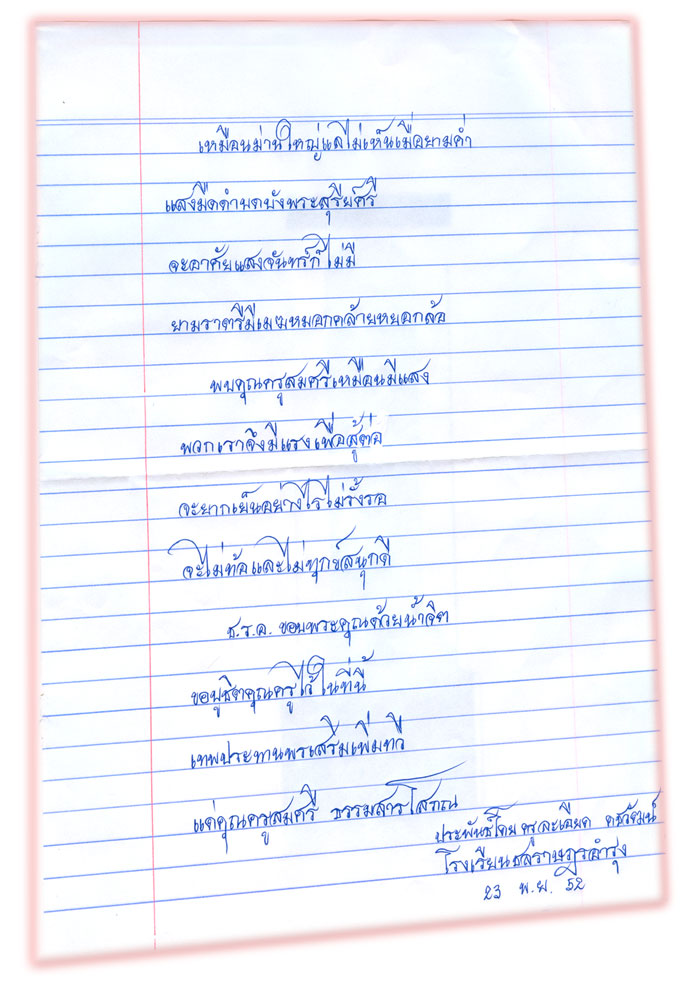 เหมือนม่านใหญ่แลไม่เห็นเมื่อยามค่ำ
แสงมืดดำบดบังพระสุรีย์ศรี
จะอาศัยแสงจันทร์ก็ไม่มี
ยามราตรีมีเมฆหมอกคล้ายหยอกล้อ
พบคุณครูสมศรีเหมือนมีแสง
พวกเราจึงมีแรงเพื่อสู้ต่อ
จะยากเย็นอย่างไรไม่รั้งรอ
จะไม่ท้อและไม่ทุกข์สนุกดี
ช.ร.อ. ขอบพระคุณด้วยน้ำจิต
ขอบูชิตคุณครูไว้ในที่นี้
เทพประทานพรเสริมเพิ่มทวี
แด่คุณครูสมศรี ธรรมสารโสภณ
ประพันธ์โดย ครูละเอียด
โรงเรียนชลราษฎรอำรุง
23 พ.ย. 52